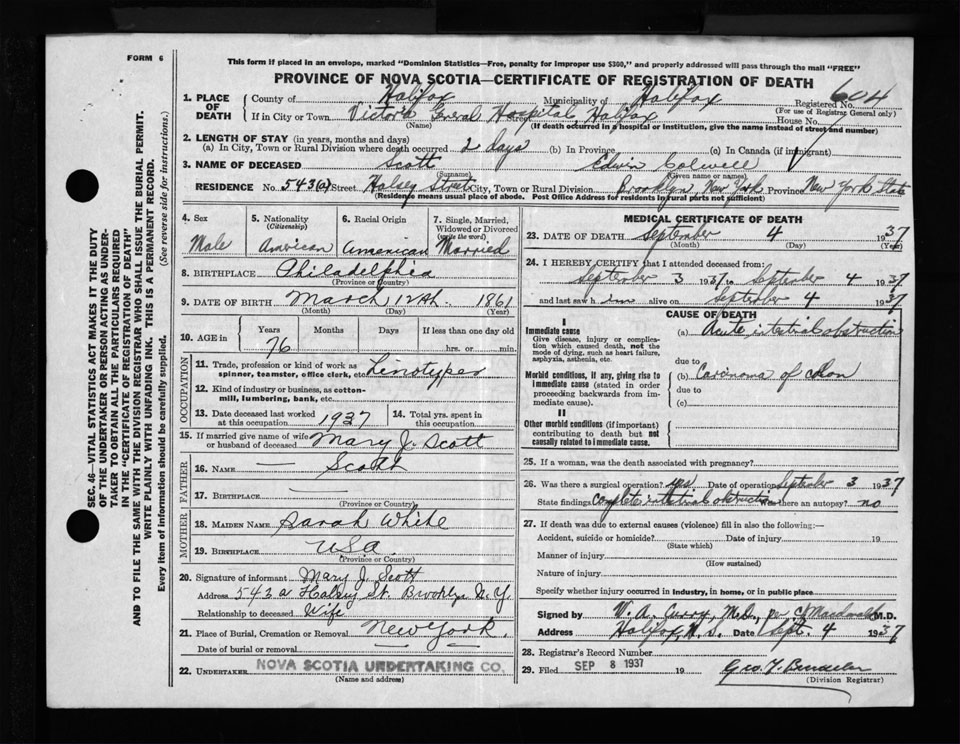 FORM 6
This form if placed in an envelope, marked "Dominion Statistics—Free, penalty for improper use $300," and properly addressed will pass through the mail "FREE"
PROVINCE OF NOVA SCOTIA—CERTIFICATE OF REGISTRATION OF DEATH
1. PLACE OF DEATH
County of Halifax Municipality of Halifax Registered No. 604
(For use of Registrar General only)
If in City or Town Victoria General Hospital, Halifax House No.
(Name) (If death occurred in a hospital or institution, give the name instead of street and number)
2. LENGTH OF STAY (in years, months and days)
(a) In City, Town or Rural Division where death occurred 2 days (b) In Province (c) In Canada (if immigrant)
3. NAME OF DECEASED Scott Edwin Colwell
(Surname) (Given name or names)
RESIDENCE No. 543(a) Street Halsey Street City, Town or Rural Division Brooklyn, New York Province New York State
(Residence means usual place of abode. Post Office Address for residents in rural parts not sufficient)
4. Sex
Male
5. Nationality
(Citizenship)
American
6. Racial Origin
American
7. Single, Married, Widowed or Divorced
(write the word)
Married
8. BIRTHPLACE Philadelphia
(Province or Country)
9. DATE OF BIRTH March 12th. 1861
(Month) (Day) (Year)
10. AGE in Years Months Days If less than one day old
76 hrs. or min.
OCCUPATION
11. Trade, profession or kind of work as spinner, teamster, office clerk, etc. Linotyper
12. Kind of industry or business, as cotton-mill, lumbering, bank, etc.
13. Date deceased last worked at this occupation 1937
14. Total yrs. spent in this occupation
15. If married give name of wife or husband of deceased Mary J. Scott
FATHER
16. NAME — Scott
17. BIRTHPLACE —
(Province or Country)
MOTHER
18. MAIDEN NAME Sarah White
19. BIRTHPLACE USA
(Province or Country)
20. Signature of informant Mary J. Scott
Address 543a Halsey St. Brooklyn N.Y.
Relationship to deceased Wife
21. Place of Burial, Cremation or Removal New York.
Date of burial or removal — —
22. UNDERTAKER NOVA SCOTIA UNDERTAKING CO.
(Name and address)
MEDICAL CERTIFICATE OF DEATH
23. DATE OF DEATH September 4 1937
(Month) (Day) (Year)
24. I HEREBY CERTIFY that I attended deceased from:
September 3 1937 to September 4 1937
and last saw him alive on September 4 1937
CAUSE OF DEATH
I
Immediate cause (a) Acute intestinal obstruction
Give disease, injury or complication which caused death, not the mode of dying, such as heart failure, asphyxia, asthenia, etc.
due to
Morbid conditions, if any, giving rise to immediate cause (stated in order proceeding backwards from immediate cause).
(b) Carcinoma of colon
due to
(c)
II
Other morbid conditions (if important) contributing to death but not causally related to immediate cause.
25. If a woman, was the death associated with pregnancy?
26. Was there a surgical operation? yes Date of operation September 3 1937
State findings Complete intestinal obstruction Was there an autopsy? no
27. If death was due to external causes (violence) fill in also the following:—
Accident, suicide or homicide? Date of injury 19
(State which)
Manner of injury
(How sustained)
Nature of injury
Specify whether injury occurred in industry, in home, or in public place
Signed by W. A. Curry, M.D. per C Macdonald M.D.
Address Halifax N.S. Date Sept. 4 1937
28. Registrar's Record Number
29. Filed SEP 8 1937 19 Geo. T.
(Division Registrar)
SEC. 46—VITAL STATISTICS ACT MAKES IT THE DUTY
OF THE UNDERTAKER OR PERSON ACTING AS UNDER-
TAKER TO OBTAIN ALL THE PARTICULARS REQUIRED
IN THE "CERTIFICATE OF REGISTRATION OF DEATH"
AND TO FILE THE SAME WITH THE DIVISION REGISTRAR WHO SHALL ISSUE THE BURIAL PERMIT.
WRITE PLAINLY WITH UNFADING INK. THIS IS A PERMANENT RECORD.
Every item of information should be carefully supplied. (See reverse side for instructions.)